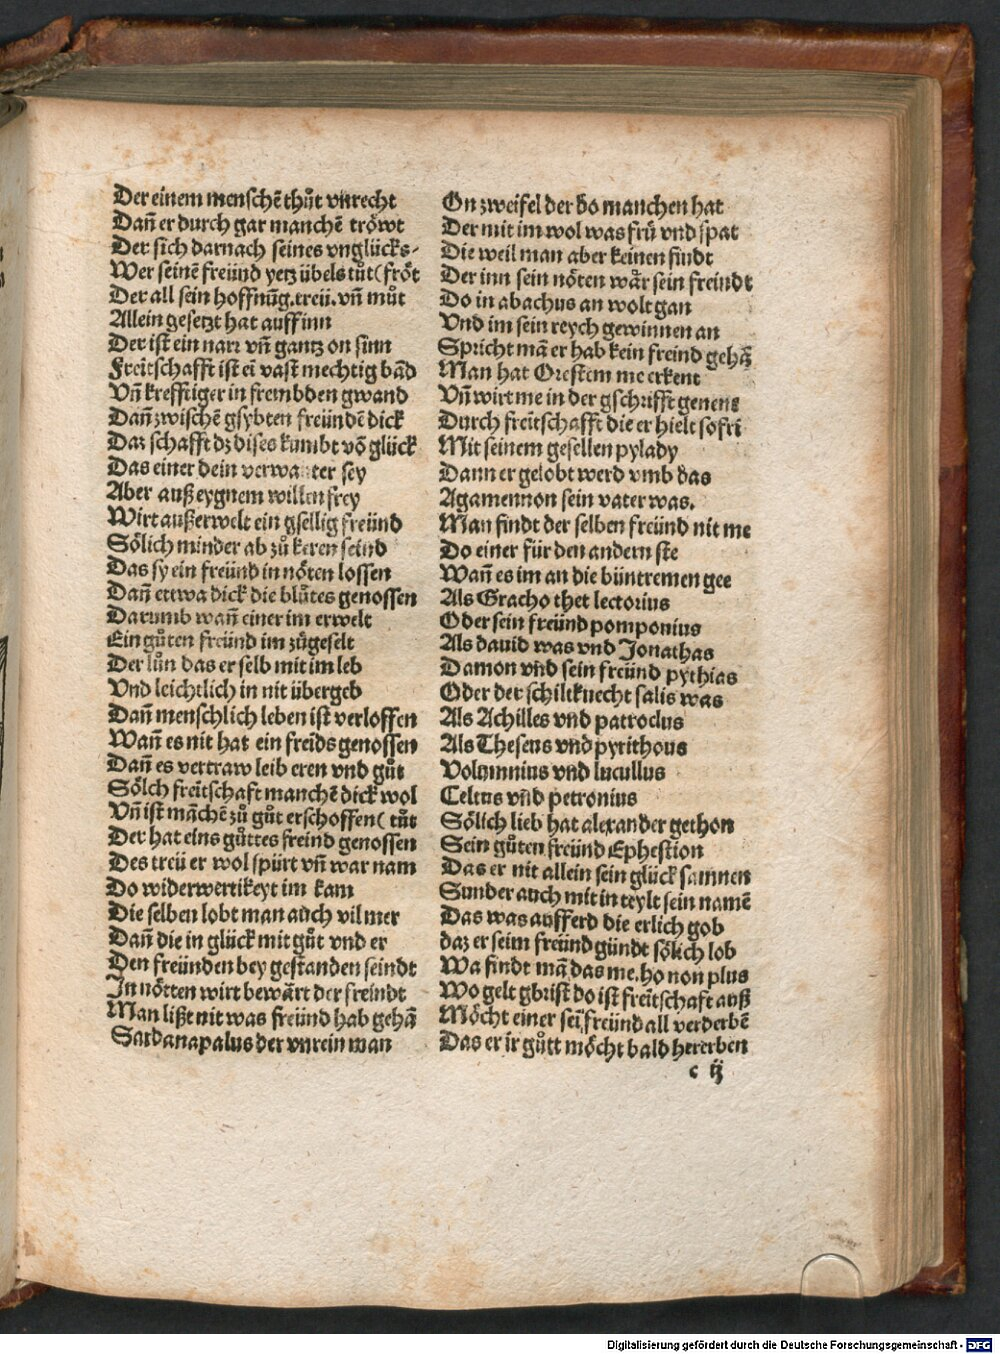 Der einem menschē thůt vnrecht
Dañ er durch gar manchē tröwt
Der sich darnach seines vnglücks-
Wer seinē freünd yetz übels tůt (fröt
Der all sein hoffnūg.treü.vñ můt
Allein gesetzt hat auff inn
Der ist ein narr vñ gantz on sinn
Freītschafft ist eī vast mechtig bād
Vñ krefftiger in frembden gwand
Dañ zwischē gsybten freündē dick
Daz schafft dz dises kumbt vō glück
Das einer dein verwanter sey
Aber auß eygnem willen frey
Wirt außerwelt ein gsellig freünd
Sölich minder ab zů keren seind
Das sy ein freünd in nöten lossen
Dañ ettwa dick die blůtes genossen
Darumb wañ einer im erwelt
Ein gůten freünd im zůgeselt
Der lůn das er selb mit im leb
Vnd leichtlich in nit übergeb
Dañ menschlich leben ist verloffen
Wañ es nit hat ein freīds genossen
Dañ es vertraw leib eren vnd gůt
Sölch freītschaft manchē dick wol
Vñ ist māchē zů gůt erschoffen (tůt
Der hat eins gůttes freind genossen
Des treü er wol spürt vñ war nam
Do widerwertikeyt im kam
Die selben lobt man auch vil mer
Dañ die in glück mit gůt vnd er
Den freünden bey gestanden seindt
In nötten wirt bewärt der freindt
Man lißt nit was freünd hab gehā
Sardanapalus der vnrein man
On zweifel der do manchen hat
Der mit im wol was frů vnd spat
Die weil man aber keinen findt
Der inn sein nöten wär sein freindt
Do in abachus an wolt gan
Vnd im sein reych gewinnen an
Spricht mā er hab kein freind gehā
Man hat Orestem me erkent
Vñ wirt me in der gschrifft genent
Durch freītschafft die er hielt so fri
Mit seinem gesellen pylady
Dann er gelobt werd vmb das
Agamennon sein vater was.
Man findt der selben freünd nit me
Do einer für den andern ste
Wañ es im an die büntremen gee
Als Gracho thet lectorius
Oder sein freünd pomponius
Als dauid was vnd Jonathas
Damon vnd sein freünd pythias
Oder der schiltknecht salis was
Als Achilles vnd patroclus
Als Theseus vnd pyrithous
Volumnius vnd lucullus
Celtus vnd petronius
Sölich lieb hat alexander gethon
Sein gůten freünd Ephestion
Das er nit allein sein glück samnen
Sunder auch mit in teylt sein namē
Das was aufferd die erlich gob
daz er seim freünd gündt sölich lob
Wa findt mā das me.ho non plus
Wo gelt gbrist do ist freītschaft auß
Möcht einer seī freünd all verderbē
Das er ir gůtt möcht bald hererben
c ij
Digitalisierung gefördert durch die Deutsche Forschungsgemeinschaft - DFG